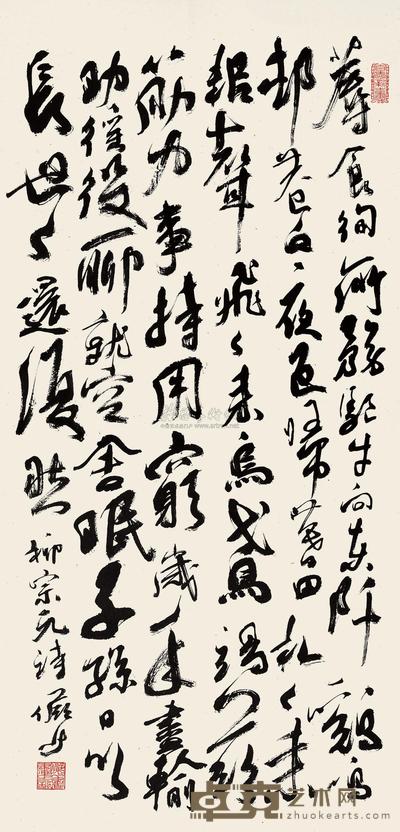 蓐食徇所務驅牛向東阡鷄鳴
邨巷白夜色歸暮田札々耒
耜聲飛々來烏鳶竭茲
筋力事持用窮歲年盡輸
助徭役聊就空舍眠子孫日以
長世々還復然
柳宗元詩 儼少
卓克艺术网
zhuokearts.com